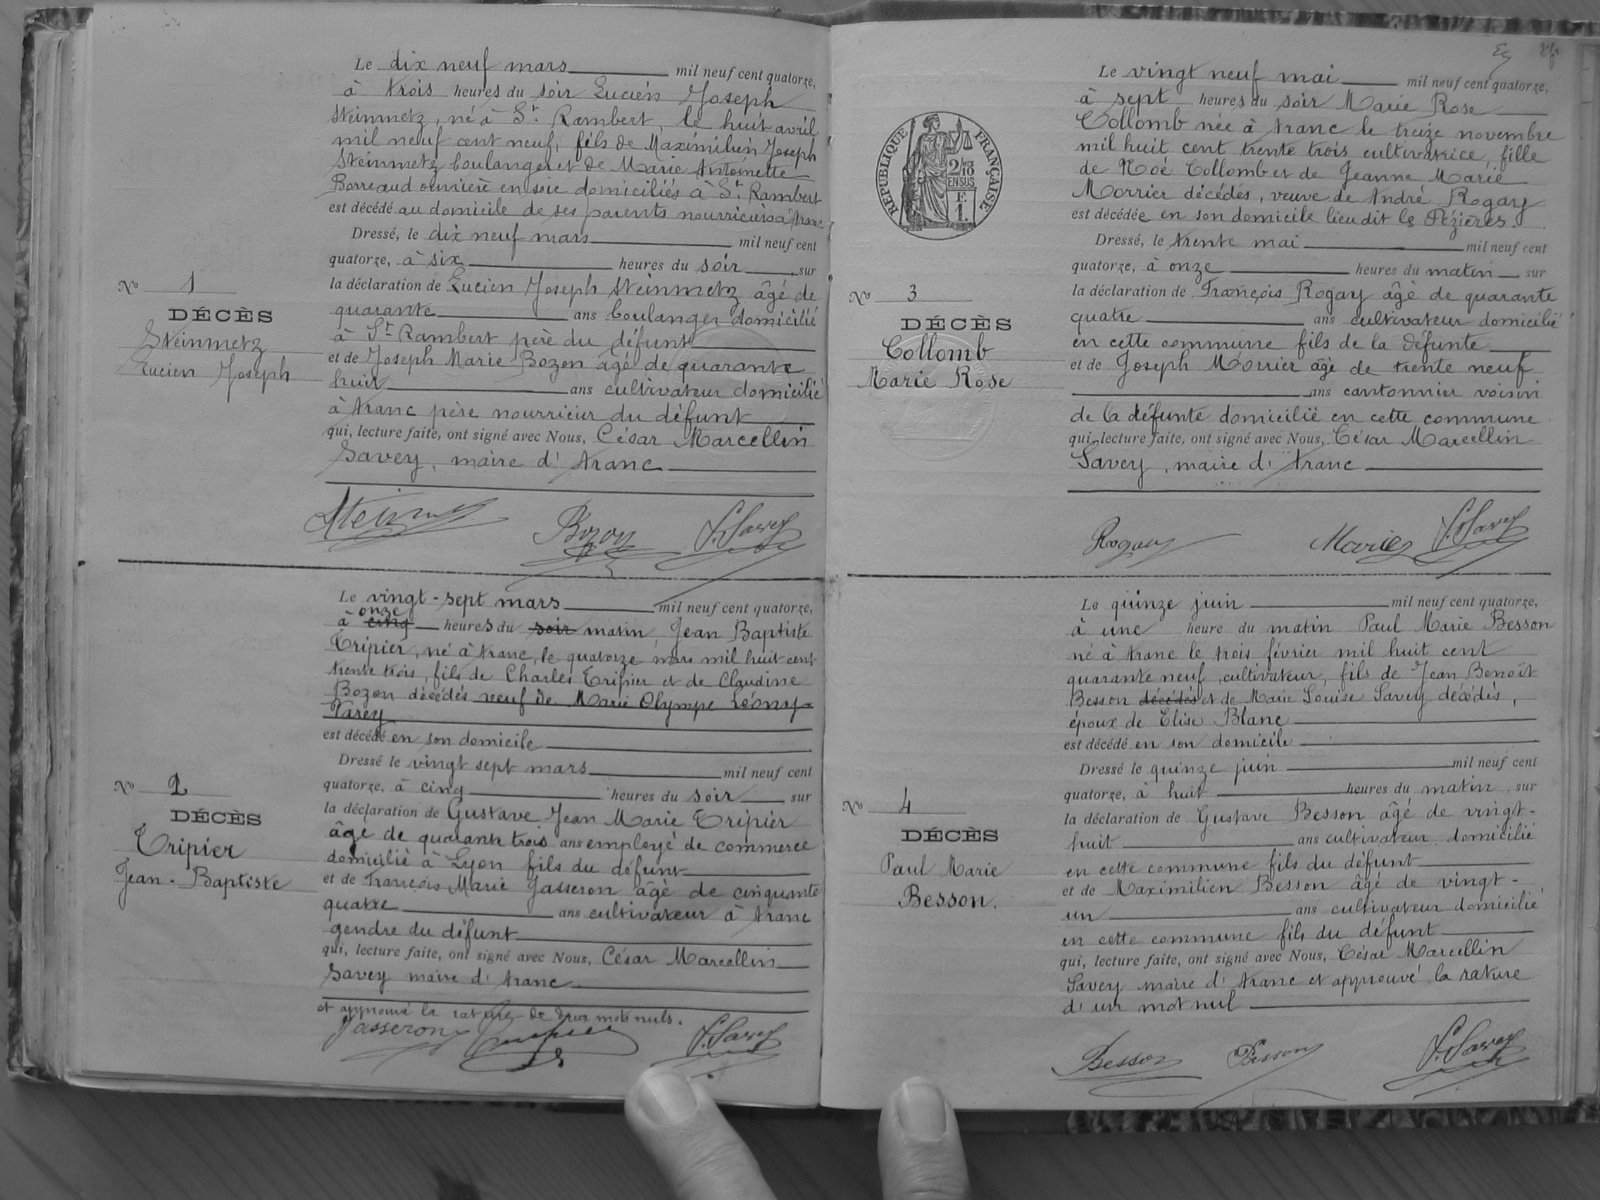 Le dix neuf mars mil neuf cent quatorze,
à trois heures du soir Lucien Joseph
Steinmetz, né à St Rambert, le huit avril
mil neuf cent neuf, fils de Maximilien Joseph
Steinmetz boulanger et de Marie Antoinette
Borreaud ouvrière en soie domiciliés à St Rambert
est décédé au domicile de ses parents nourriciers à Aranc
Dressé, le dix neuf mars mil neuf cent
quatorze, à six heures du soir, sur
la déclaration de Lucien Joseph Steinmetz âgé de
quarante ans boulanger domicilié
à St Rambert père du défunt
et de Joseph Marie Bozon âgé de quarante
huit ans cultivateur domicilié
à Aranc père nourricier du défunt
qui, lecture faite, ont signé avec Nous, César Marcellin
Savey, maire d'Aranc
No 1
DÉCÈS
Steinmetz
Lucien Joseph
Bozon
Savey
Le vingt-sept mars mil neuf cent quatorze,
onze
à cinq heures du soir matin Jean Baptiste
Tripier, né à Aranc, le quatorze mars mil huit cent
trente trois, fils de Charles Tripier et de Claudine
Bozon décédés veuf de Marie Olympe Léony
Varey
est décédé en son domicile
Dressé le vingt sept mars mil neuf cent
quatorze, à cinq heures du soir sur
la déclaration de Gustave Jean Marie Tripier
âgé de quarante trois ans employé de commerce
domicilié à Lyon fils du défunt
et de François Marie Jasseron âgé de cinquante
quatre ans cultivateur à Aranc
gendre du défunt
qui, lecture faite, ont signé avec Nous, César Marcellin
Savey maire d'Aranc
et approuvé la rature de deux mots nuls.
No 2
DÉCÈS
Tripier
Jean-Baptiste
Jasseron
Savey
RÉPUBLIQUE FRANÇAISE
2/10
EN SUS
F
1.
Le vingt neuf mai mil neuf cent quatorze,
à sept heures du soir Marie Rose
Collomb née à Aranc le treize novembre
mil huit cent trente trois cultivatrice, fille
de Noé Collomb et de Jeanne Marie
Morrier décédés, veuve de André Rogay
est décédée en son domicile lieu dit les Pézières
Dressé, le trente mai mil neuf cent
quatorze, à onze heures du matin sur
la déclaration de François Rogay âgé de quarante
quatre ans cultivateur domicilié
en cette commune fils de la défunte
et de Joseph Morrier âgé de trente neuf
ans cantonnier voisin
de la défunte domicilié en cette commune
qui, lecture faite, ont signé avec Nous, César Marcellin
Savey, maire d'Aranc
No 3
DÉCÈS
Collomb
Marie Rose
Rogay
Savey
Le quinze juin mil neuf cent quatorze,
à une heure du matin Paul Marie Besson
né à Aranc le trois février mil huit cent
quarante neuf, cultivateur, fils de Jean Benoît
Besson décédés et de Marie Louise Savey décédés,
époux de Elise Blanc
est décédé en son domicile
Dressé le quinze juin mil neuf cent
quatorze, à huit heures du matin, sur
la déclaration de Gustave Besson âgé de vingt-
huit ans cultivateur domicilié
en cette commune fils du défunt
et de Maximilien Besson âgé de vingt-
un ans cultivateur domicilié
en cette commune fils du défunt
qui, lecture faite, ont signé avec Nous, César Marcellin
Savey maire d'Aranc et approuvé la rature
d'un mot nul
No 4
DÉCÈS
Paul Marie
Besson.
Besson
Besson
Savey